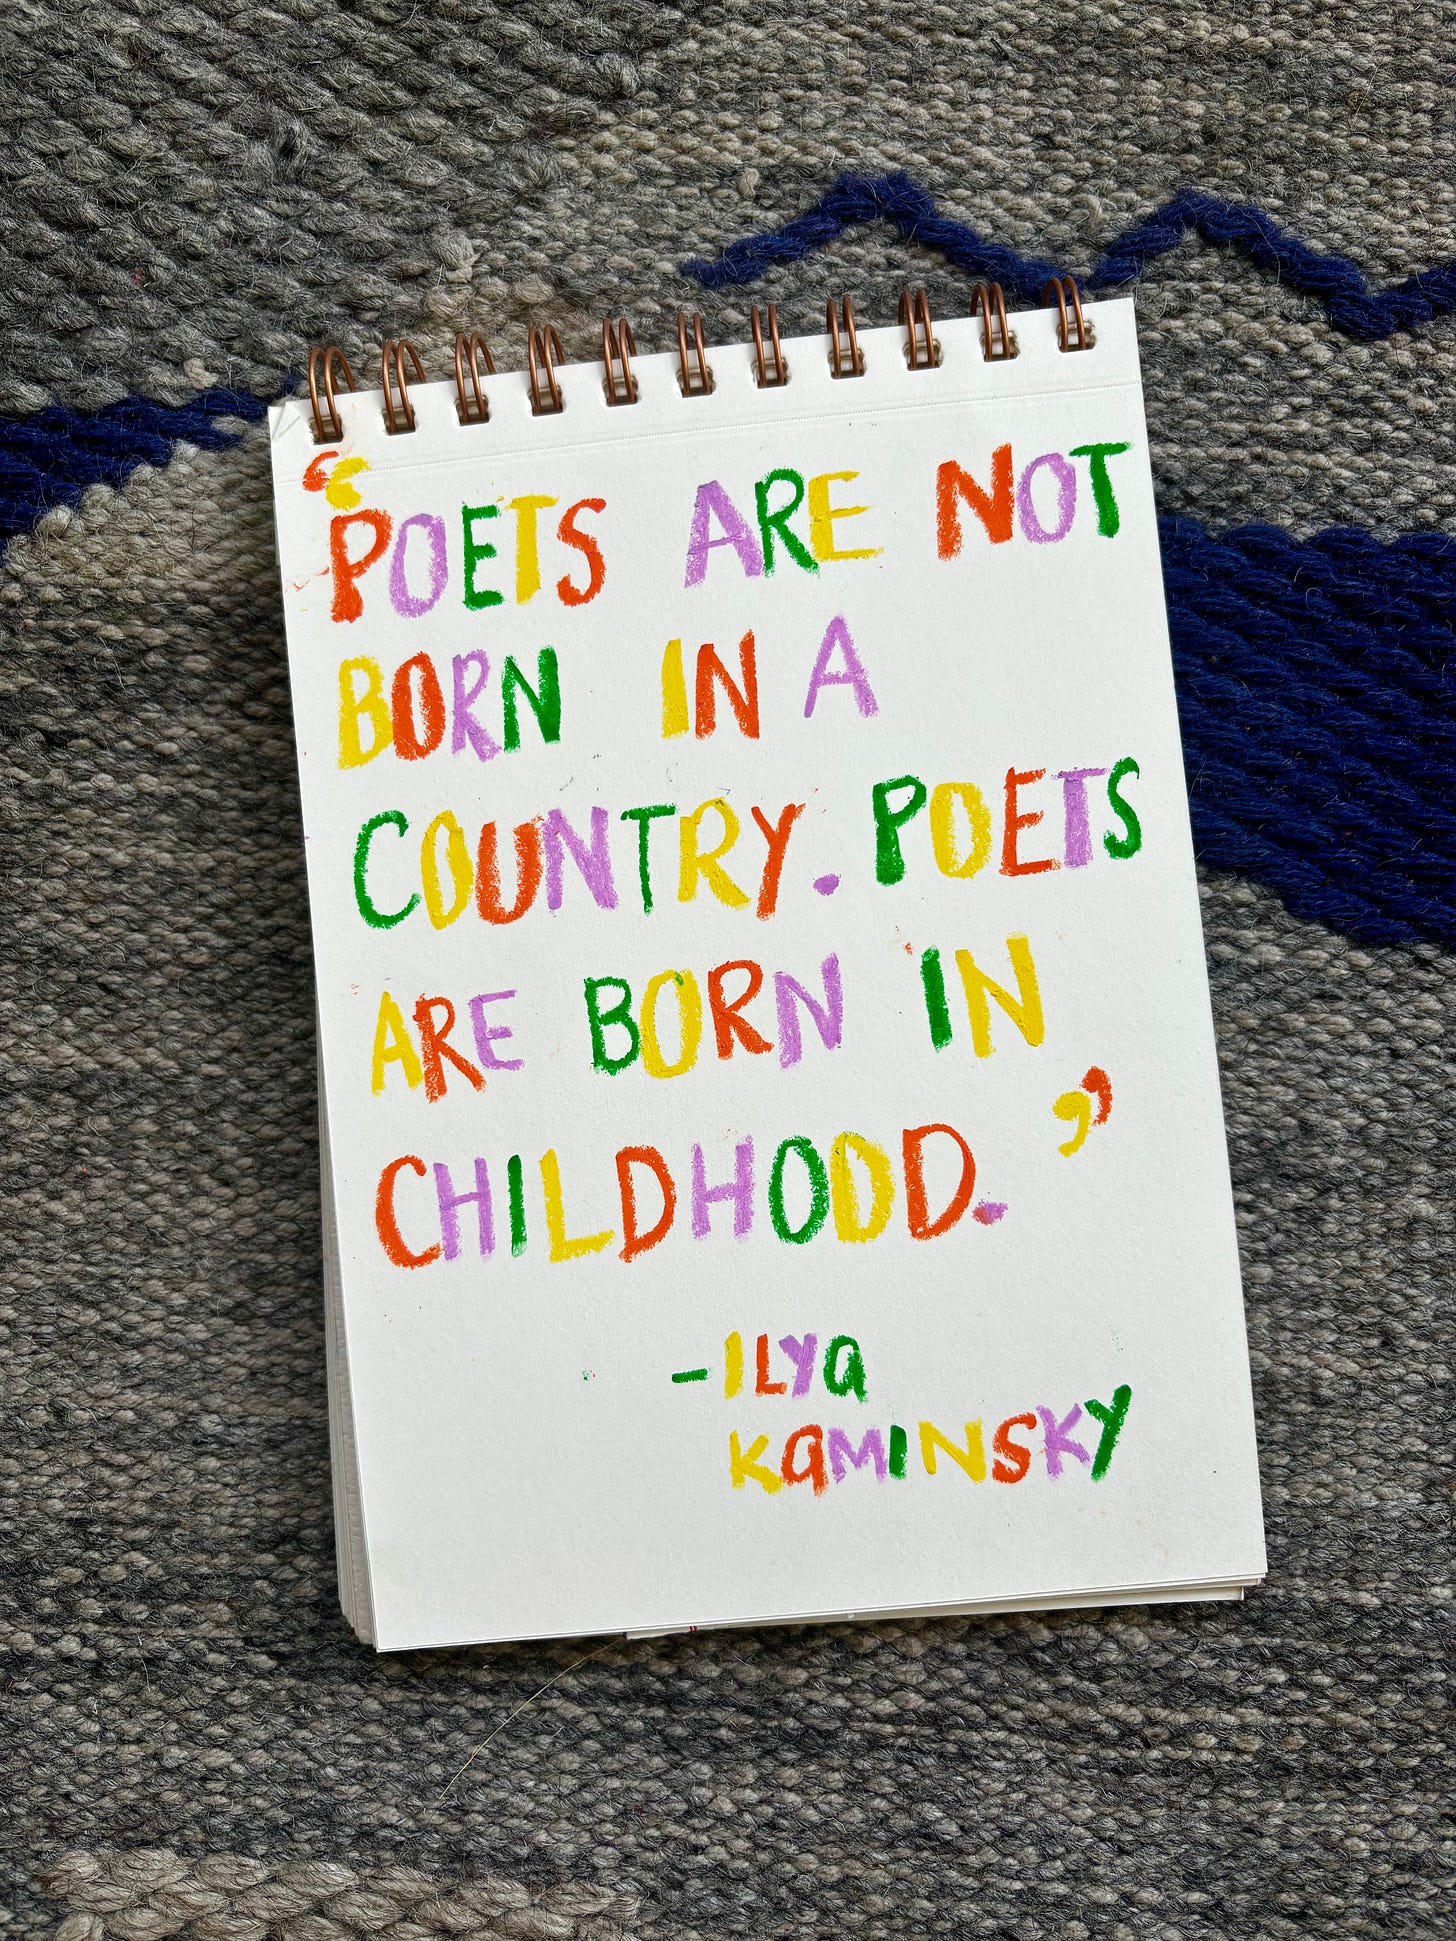 “POETS ARE NOT
BORN IN A
COUNTRY. POETS
ARE BORN IN
CHILDHOOD.”
-ILYa
KaMINSKY